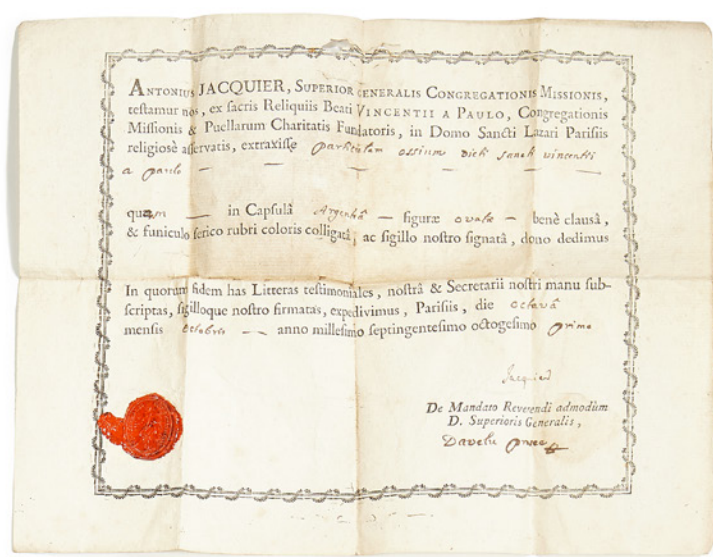 ANTONIUS JACQUIER, SUPERIOR GENERALIS CONGREGATIONIS MISSIONIS,
teſtamur nos, ex ſacris Reliquiis Beati VINCENTII A PAULO, Congregationis
Miſſionis & Puellarum Charitatis Fundatoris, in Domo Sancti Lazari Pariſiis
religiosè aſſervatis, extraxiſſe particulam ossium dicti sancti vincentii
a paulo — — — — —
quam — in Capſulâ Argenteâ — figuræ ovatæ — benè clausâ,
& funiculo ſerico rubri coloris colligatâ, ac ſigillo noſtro ſignatâ, dono dedimus
In quorum fidem has Litteras teſtimoniales, noſtrâ & Secretarii noſtri manu ſub-
ſcriptas, ſigilloque noſtro firmatas, expedivimus, Pariſiis, die octavâ
menſis octobris — anno milleſimo ſeptingenteſimo octogeſimo primo
Jacquier
De Mandato Reverendi admodùm
D. Superioris Generalis,